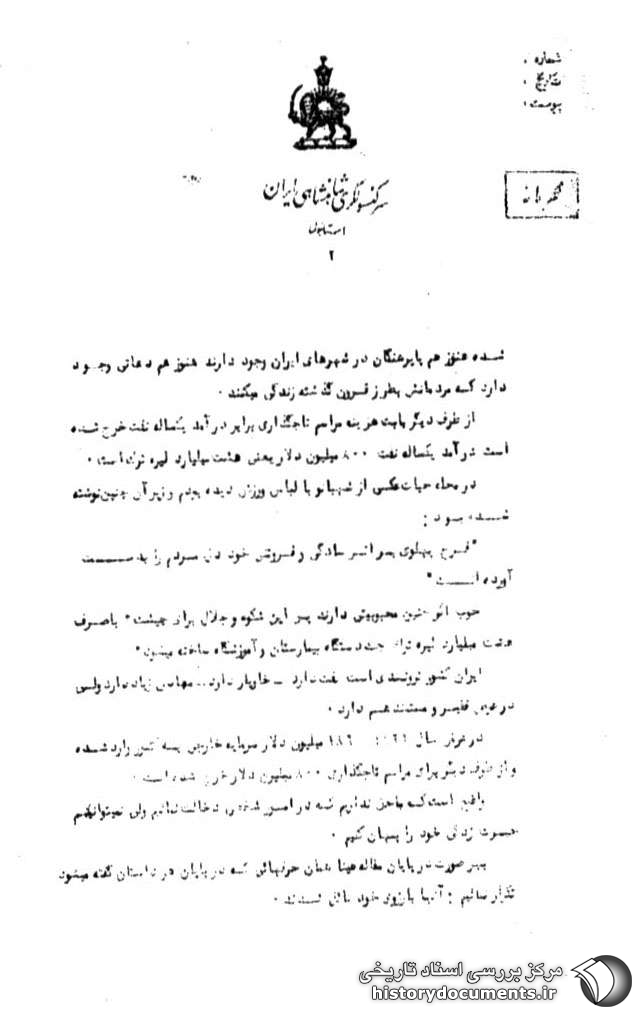 شماره
تاریخ
پیوست
محرمانه
سرکنسولگری شاهنشاهی ایران
استانبول
۲
شده هنوز هم پابرهنگان در شهرهای ایران وجود دارند هنوز هم دهاتی وجود
دارد که مردمانش بطرز قرون گذشته زندگی میکنند .
از طرف دیگر بابت هزینه مراسم تاجگذاری برابر درآمد یکساله نفت خرج شده
است درآمد یکساله نفت ۸۰۰ میلیون دلار یعنی هشت میلیارد لیره ترک است .
در مجله حیات عکسی از شهبانو با لباس ورزش دیده بودم و زیر آن چنین نوشته
شده بود :
"فرح پهلوی بر اثر سادگی و فروتنی خود دل مردم را بدست
آورده است "
خوب اگر چنین محبوبیتی دارند پس این شکوه و جلال برای چیست . باصرف
هشت میلیارد لیره ترک دستگاه بیمارستان و آموزشگاه ساخته میشود .
ایران کشور ثروتمندی است نفت دارد _ خاویار دارد .. معادن زیاد دارد ولی
در عوض فقیر و مستمند هم دارد .
در عرض سال میلیون دلار سرمایه خارجی به کشور وارد شده
و از طرف دیگر برای مراسم تاجگذاری ۸۰۰ میلیون دلار خرج شده است .
واضح است که ماحق نداریم که در امور شخصی دخالت نمائیم ولی نمیتوانیم
حسرت زدگی خود را پنهان کنیم .
بهر صورت در پایان مقاله عینا همان حرفهائی که در پایان هر داستان گفته میشود
تکرار نمائیم : آنها بآرزوی خود نائل شدند .
مرکز بررسی اسناد تاریخی
historydocuments.ir